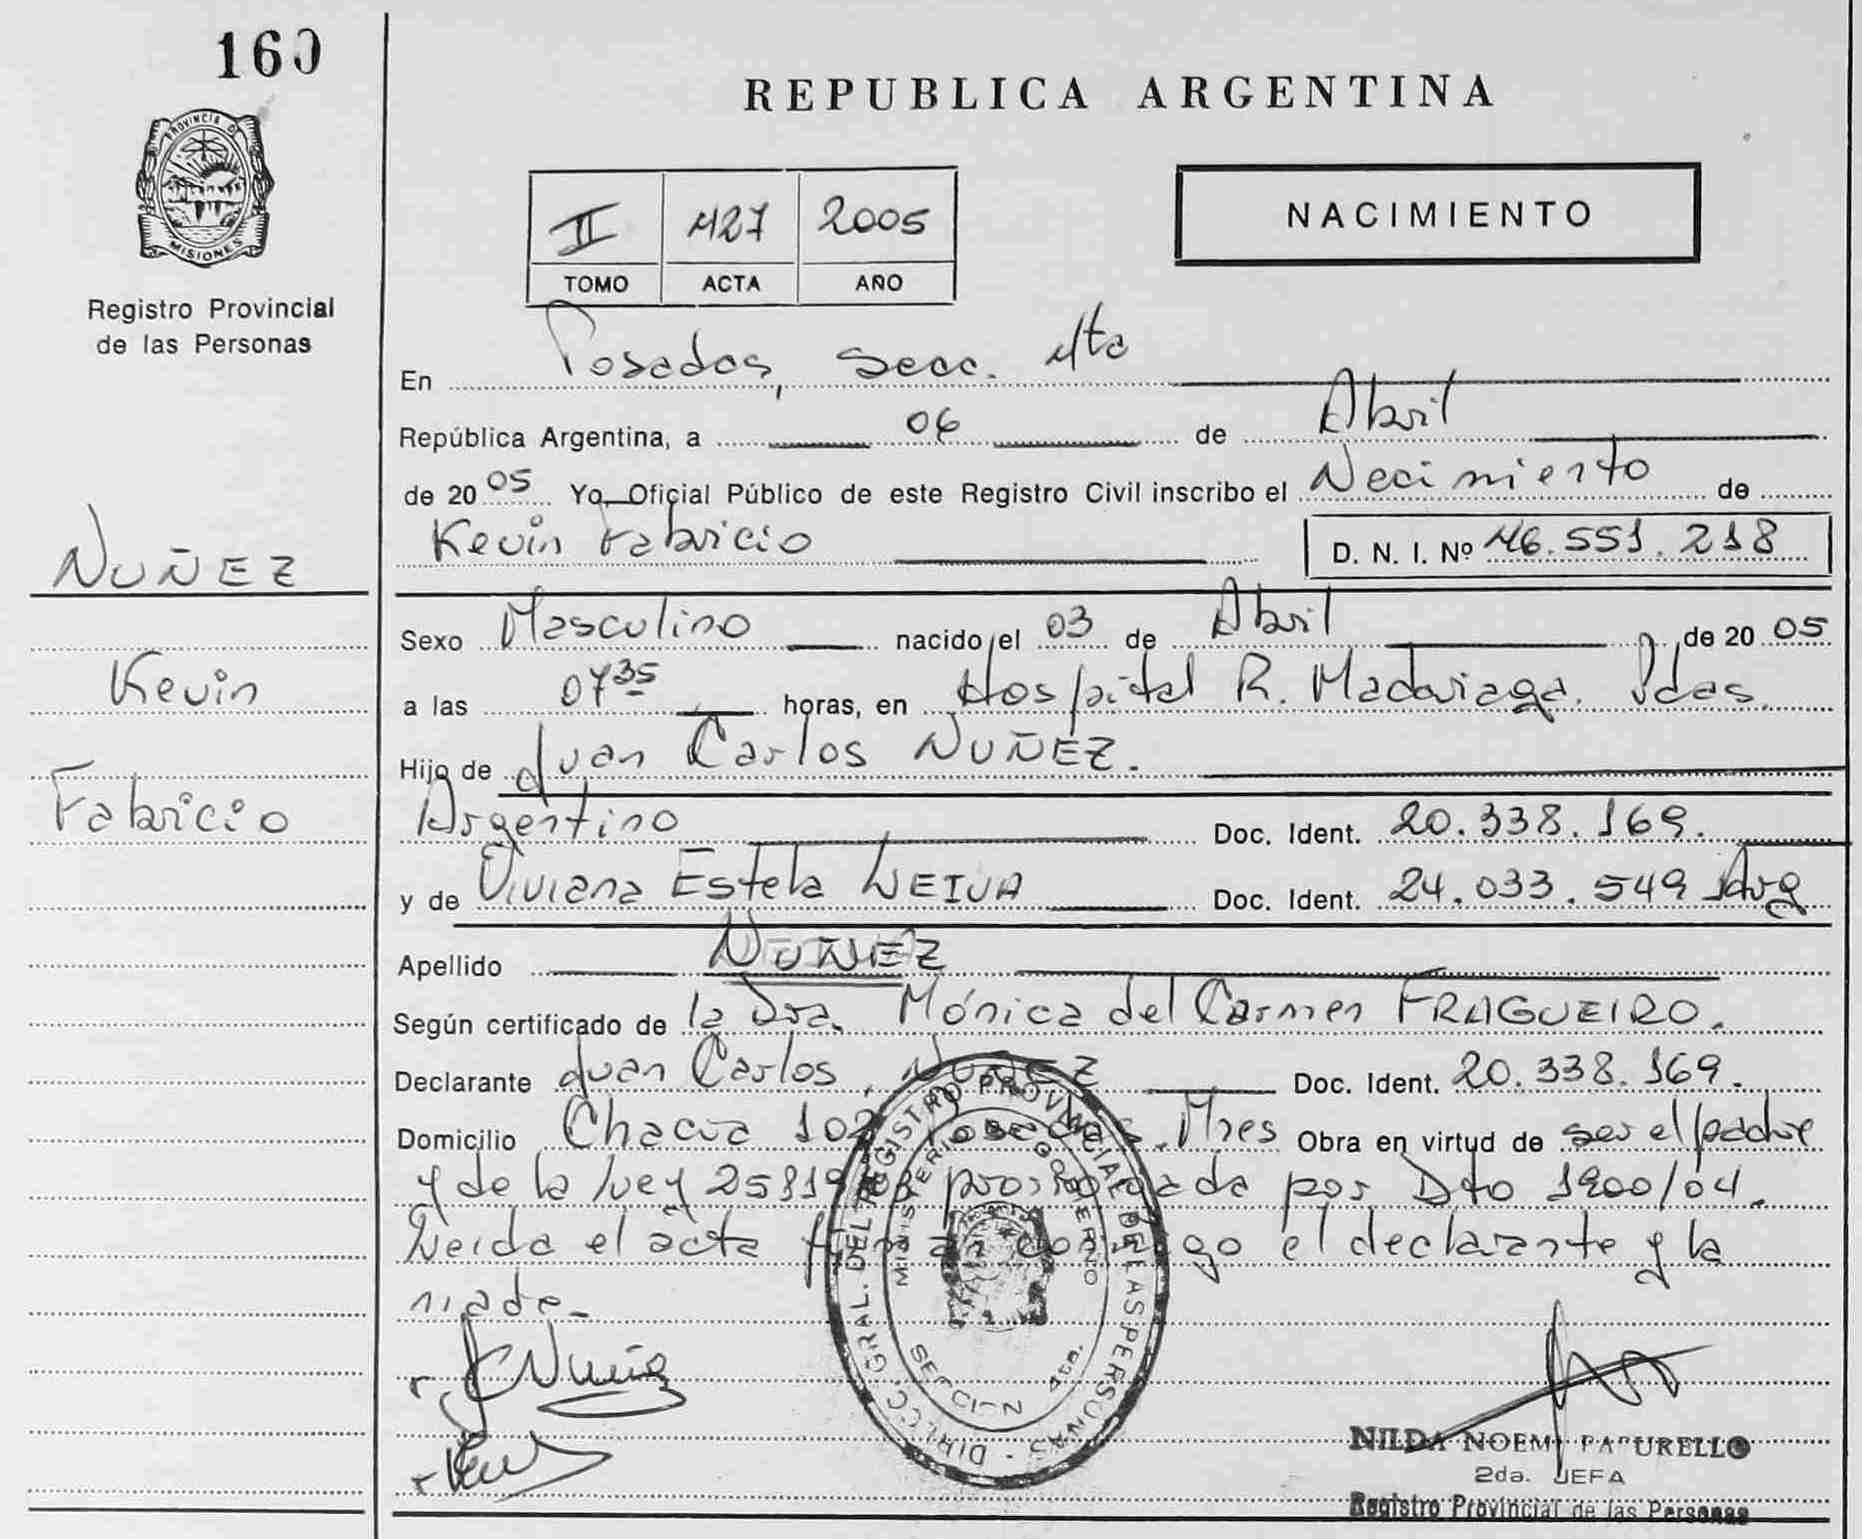 160
PROVINCIA D
MISIONES
Registro Provincial
de las Personas
NUÑEZ
Kevin
Fabricio
REPUBLICA ARGENTINA
II 427 2005
TOMO ACTA AÑO
NACIMIENTO
En Posadas, Secc. 4ta
República Argentina, a 06 de Abril
de 2005 Yo, Oficial Público de este Registro Civil inscribo el Nacimiento de
Kevin Fabricio D. N. I. Nº 46.551.218
Sexo Masculino nacido el 03 de Abril de 2005
a las 07 35 horas, en Hospital R. Madariaga. Pdas.
Hijo de Juan Carlos NUÑEZ.
Argentino Doc. Ident. 20.338.169.
y de Viviana Estela LEIVA Doc. Ident. 24.033.549 Arg
Apellido NUÑEZ
Según certificado de la Dra. Mónica del Carmen FRAGUEIRO.
Declarante Juan Carlos NUÑEZ Doc. Ident. 20.338.169.
Domicilio Chacra 102 Posadas. Mnes Obra en virtud de ser el padre
y de la Ley 25819/03 prorrogada por Dto 1900/04.
Leida el acta firman conmigo el declarante y la
madre_
J C Nuñez
DIRECC. GRAL. DEL REGISTRO PROVINCIAL DE LAS PERSONAS
MINISTERIO DE GOBIERNO
SECCION 4ta.
NILDA NOEMI PAPURELLO
2da. JEFA
Registro Provincial de las Personas